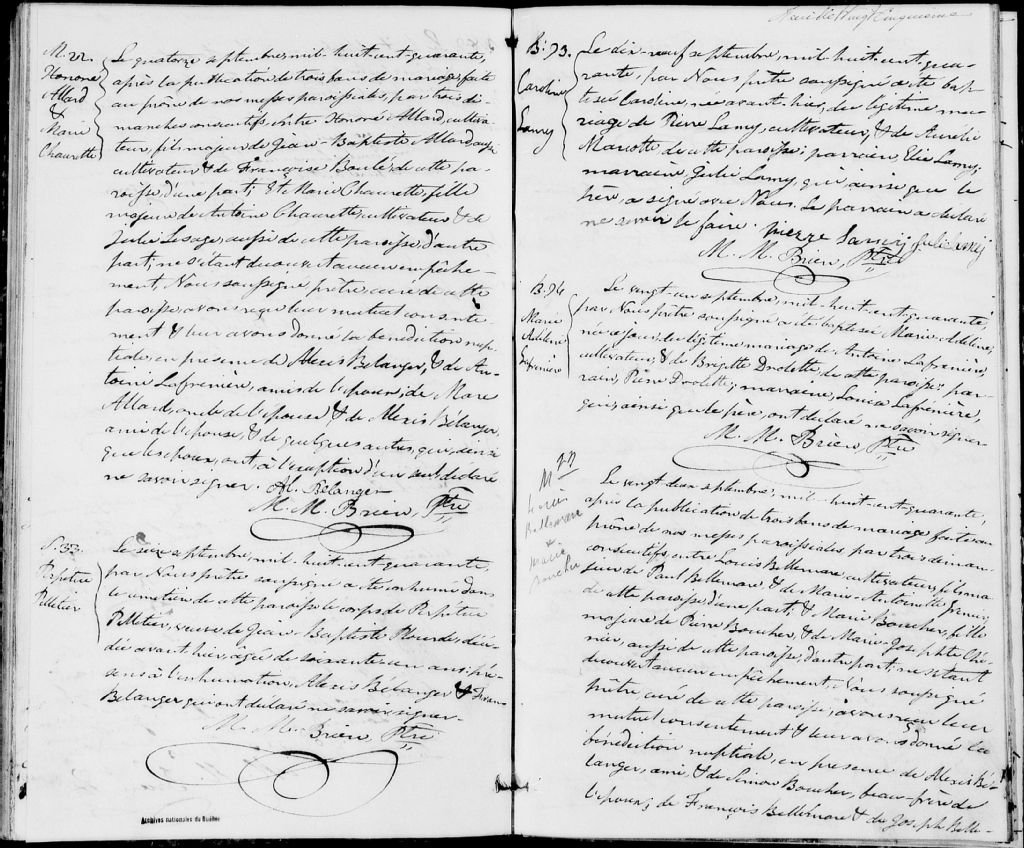 M. 22.
Honoré
Allard
&
Marie
Chaurette
Le quatorze septembre, mil-huit-cent-quarante,
après la publication de trois bans de mariage, faite
au prône de nos messes paroissiales, par trois di-
manches consécutifs, entre Honoré Allard, cultiva-
teur, fils majeur de Jean-Baptiste Allard aussi
cultivateur & de Françoise Boulé, de cette pa-
roisse, d'une part; & Marie Chaurette, fille
majeure de Antoine Chaurette, cultivateur & de
Julie Lesage, aussi de cette paroisse, d'autre
part; ne s'étant découvert aucun empêche-
ment, Nous soussigné prêtre, curé de cette
paroisse, avons reçu leur mutuel consente-
ment & leur avons donné la bénédiction nup-
tiale, en presence de Alexis Bélanger, & de An-
toine Lafrenière, amis de l'époux; de Marc
Allard, oncle de l'épouse & de Alexis Bélanger,
ami de l'épouse, & de quelques autres, qui, ainsi
que les époux, ont, à l'exception d'un seul déclaré
ne savoir signer. Al. Bélanger
M. M. Brien, Ptre
S. 33.
Perpétue
Pelletier
Le seize septembre, mil-huit-cent-quarante,
par Nous prêtre soussigné a été inhumé dans
le cimetière de cette paroisse le corps de Perpétue
Pelletier, veuve de Jean-Baptiste Plourde, décé-
dée avant hier, âgée de soixante-un ans: pré-
sens à l'inhumation, Alexis Bélanger &
Bélanger qui ont déclaré ne savoir signer.
M. M. Brien, Ptre
Archives nationales du Québec
Feuillet Vingt Cinquieme
B. 93.
Caroline
Lamy
Le dix-neuf septembre, mil-huit-cent-qua-
rante, par Nous prêtre soussigné a été bap-
tisée Caroline, née avant-hier, du légitime ma-
riage de Pierre Lamy, cultivateur, & de Aurélie
Marcotte de cette paroisse: parrain, Elie Lamy;
marraine, Julie Lamy, qui, ainsi que le
père, a signé avec Nous. Le parrain a déclaré
ne savoir le faire. pierre Lamy Julie Lamy
M. M. Brien, Ptre
B. 94
Marie
Adeline
Lafrenière
Le vingt-un septembre, mil-huit-cent-quarante,
par Nous prêtre soussigné a été baptisée Marie Adeline,
née ce jour, du légitime mariage de Antoine Lafrenière,
cultivateur, & de Brigitte Drolette de cette paroisse: par-
rain, Pierre Drolette; marraine, Louise Lafrénière,
qui, ainsi que le père, ont déclaré ne savoir signer.
M. M. Brien, Ptre
M 23
Louis
Bellemare
&
Marie
Boucher
Le vingt-deux septembre, mil-huit-cent-quarante,
après la publication de trois bans de mariage faite au
prône de nos messes paroissiales par trois diman-
ches consécutifs, entre Louis Bellemare cultivateur, fils ma-
jeur de Paul Bellemare & de Marie-Antoinette
de cette paroisse, d'une part; & Marie Boucher, fille
majeure de Pierre Boucher, & de Marie-Josephte Ché-
nier, aussi de cette paroisse, d'autre part; ne s'étant
découvert aucun empêchement, Nous soussigné
prêtre curé de cette paroisse, avons reçu leur
mutuel consentement & leur avons donné la
bénédiction nuptiale, en présence de Alexis Bé-
langer, ami, & de Simon Boucher, beau-frère de
l'époux; de François Bellemare & de Joseph Belle-